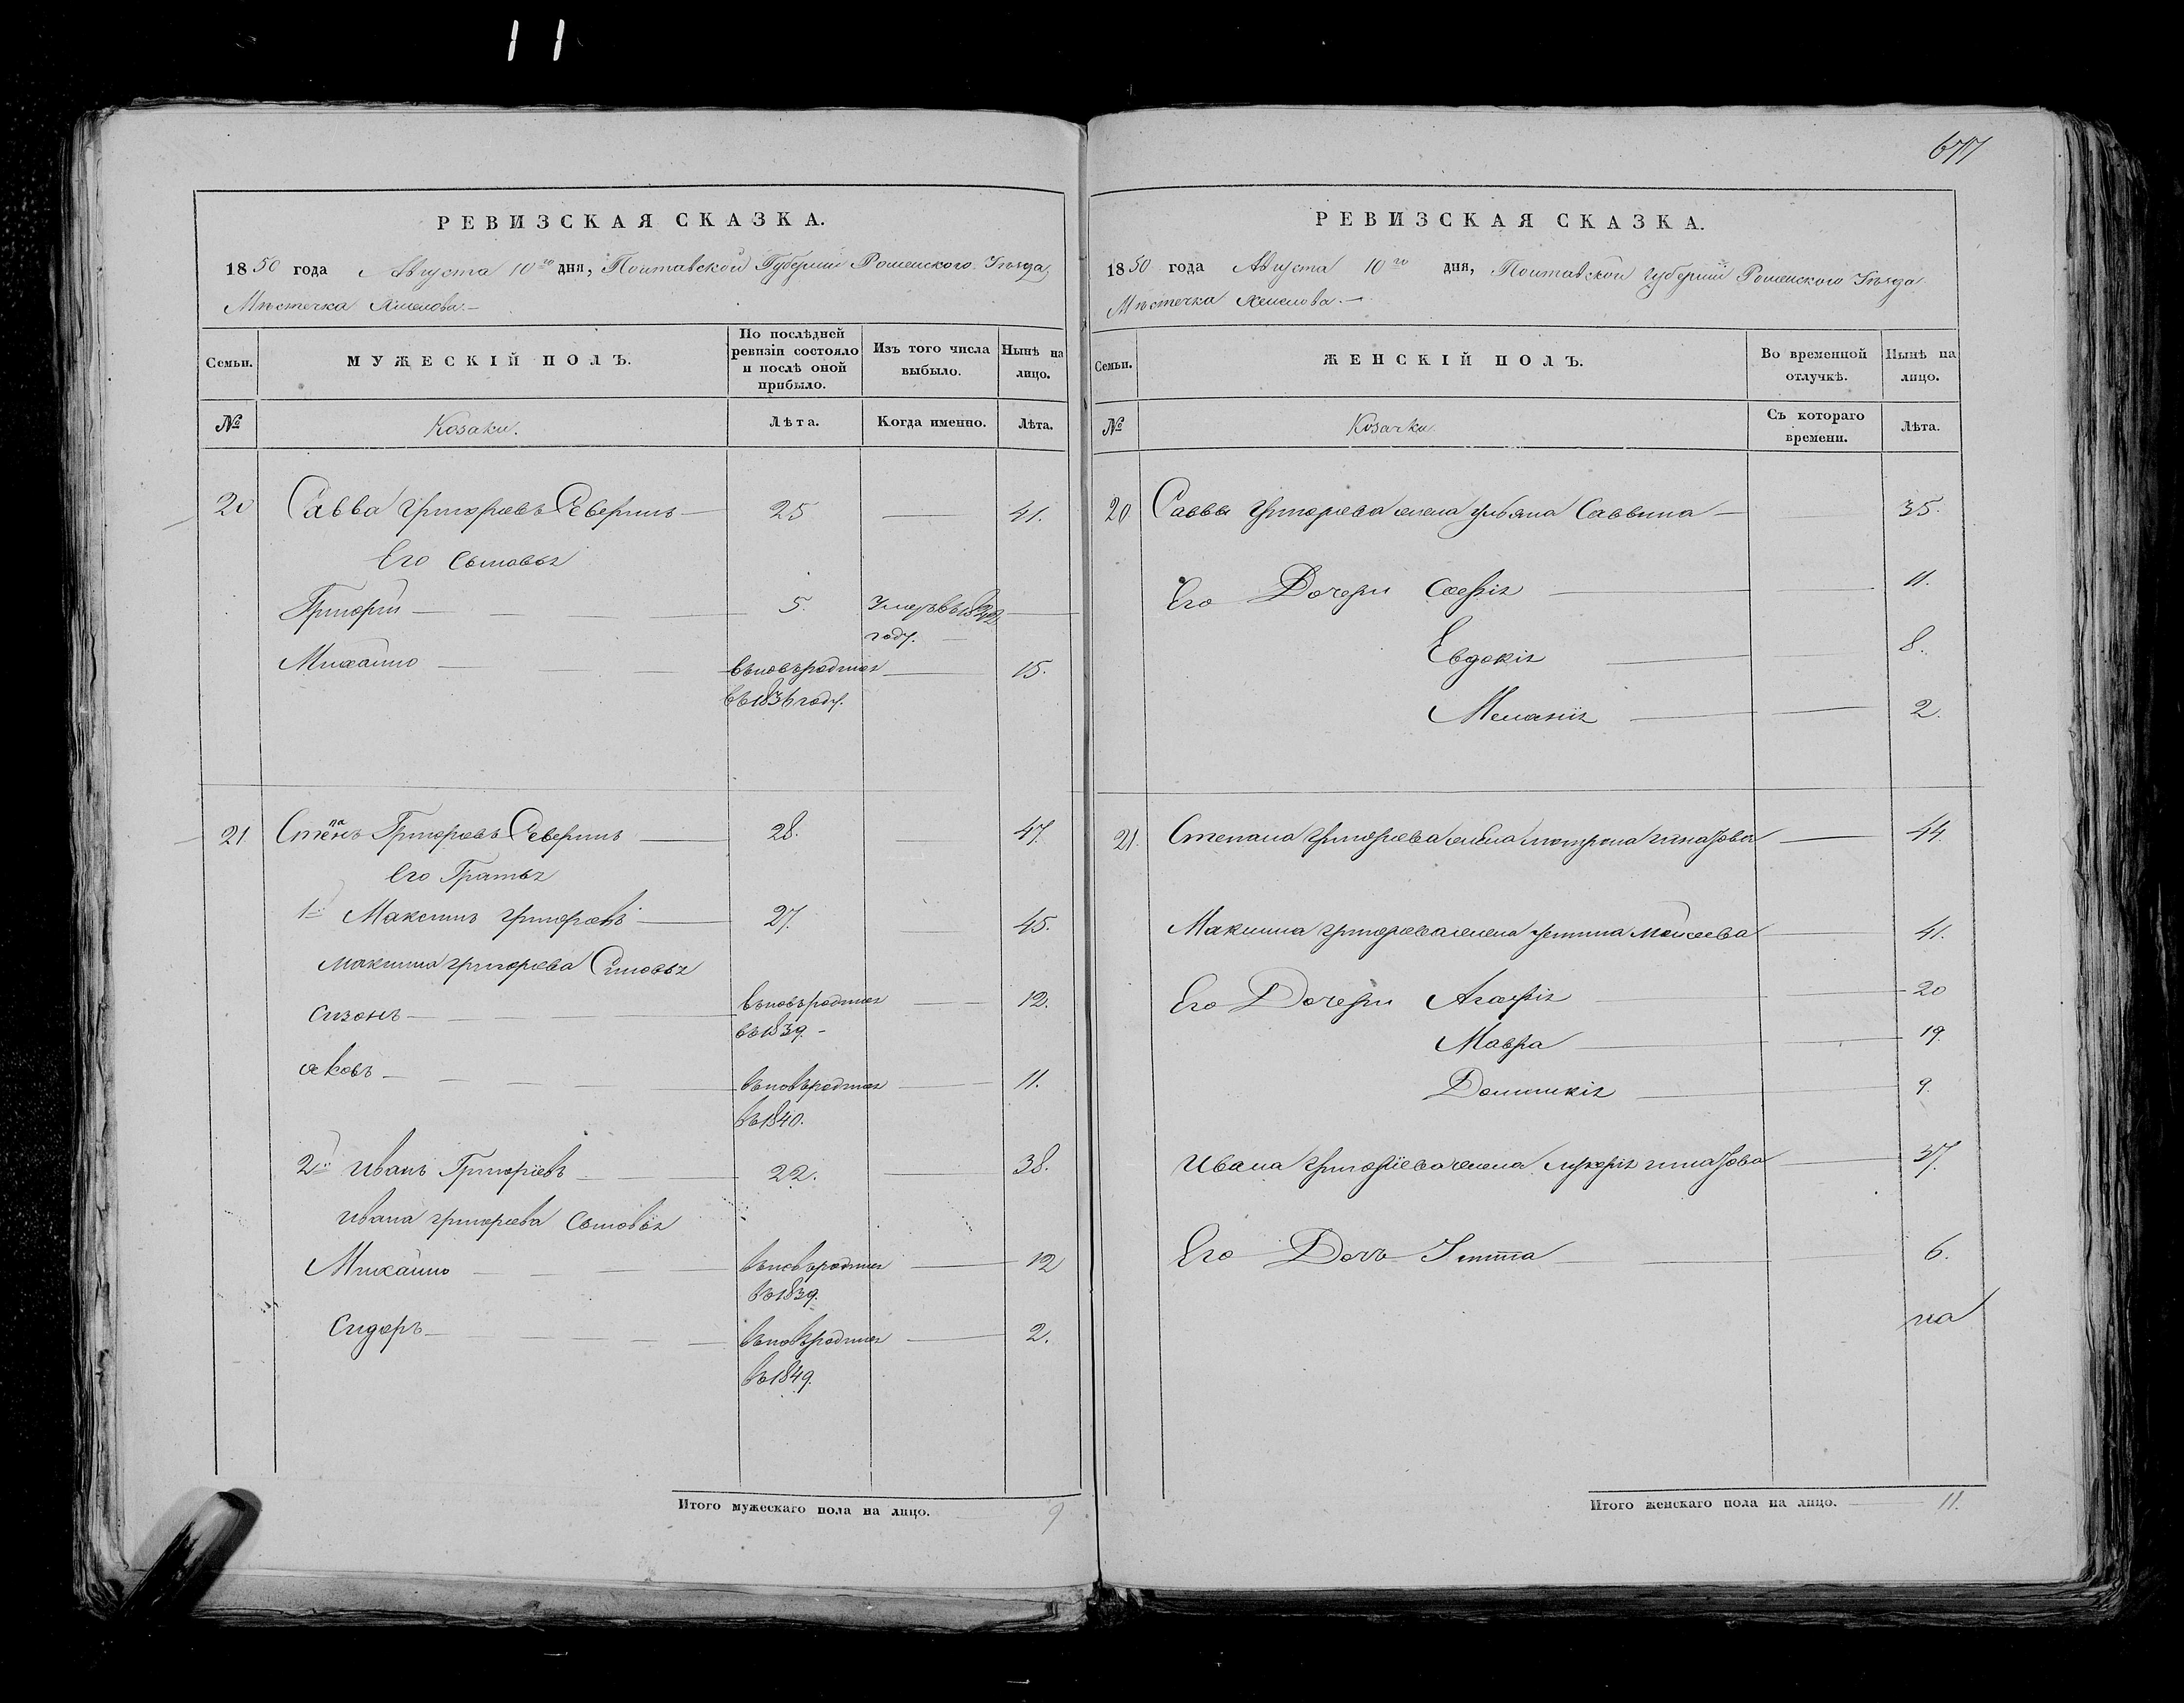 11
РЕВИЗСКАЯ СКАЗКА.
1850 года Августа 10го дня, Полтавской Губернии Роменского Уѣзда
Мѣстечка
Семьи.
МУЖЕСКІЙ ПОЛЪ.
По послѣдней ревизіи состояло и послѣ оной прибыло.
Изъ того числа выбыло.
Нынѣ на лицо.
№
Козаки.
Лѣта.
Когда именно.
Лѣта.
20 Савва Григорьевъ Северинъ 25 41.
Его Сыновья
Григорій 5. Умеръ въ 1842
году.
Михайло вновьродился 15.
въ 1836 году.
21 Степанъ Григорьевъ Северинъ 28. 47.
Его Братья
1й Максимъ Григорьевъ 27. 45.
Максима Григорьева Сыновья
Сизонъ вновьродился 12.
въ 1839.
Яковъ вновьродился 11.
въ 1840.
2й Иванъ Григорьевъ 22. 38.
Ивана Григорьева Сыновья
Михайло вновьродился 12
въ 1839.
Сидоръ вновьродился 2.
въ 1849.
Итого мужескаго пола на лицо. 9
677
РЕВИЗСКАЯ СКАЗКА.
1850 года Августа 10го дня, Полтавской Губерніи Роменского Уѣзда
Мѣстечка
Семьи.
ЖЕНСКІЙ ПОЛЪ.
Во временной отлучкѣ.
Нынѣ на лицо.
№
Козачки.
Съ котораго времени.
Лѣта.
20 Саввы Григорьева жена Ульяна Саввина 35.
Его Дочери Софія 11.
Евдокія 8.
Меланія 2.
21. Степана Григорьева жена Мотрона Игнатова 44.
Максима Григорьева жена Устина Моисеева 41.
Его Дочери Агафія 20
Мавра 19.
Домникія 9.
Ивана Григоріева жена Лукерія Игнатова 37.
Его Дочь Устина 6.
на
Итого женскаго пола на лицо. 11.